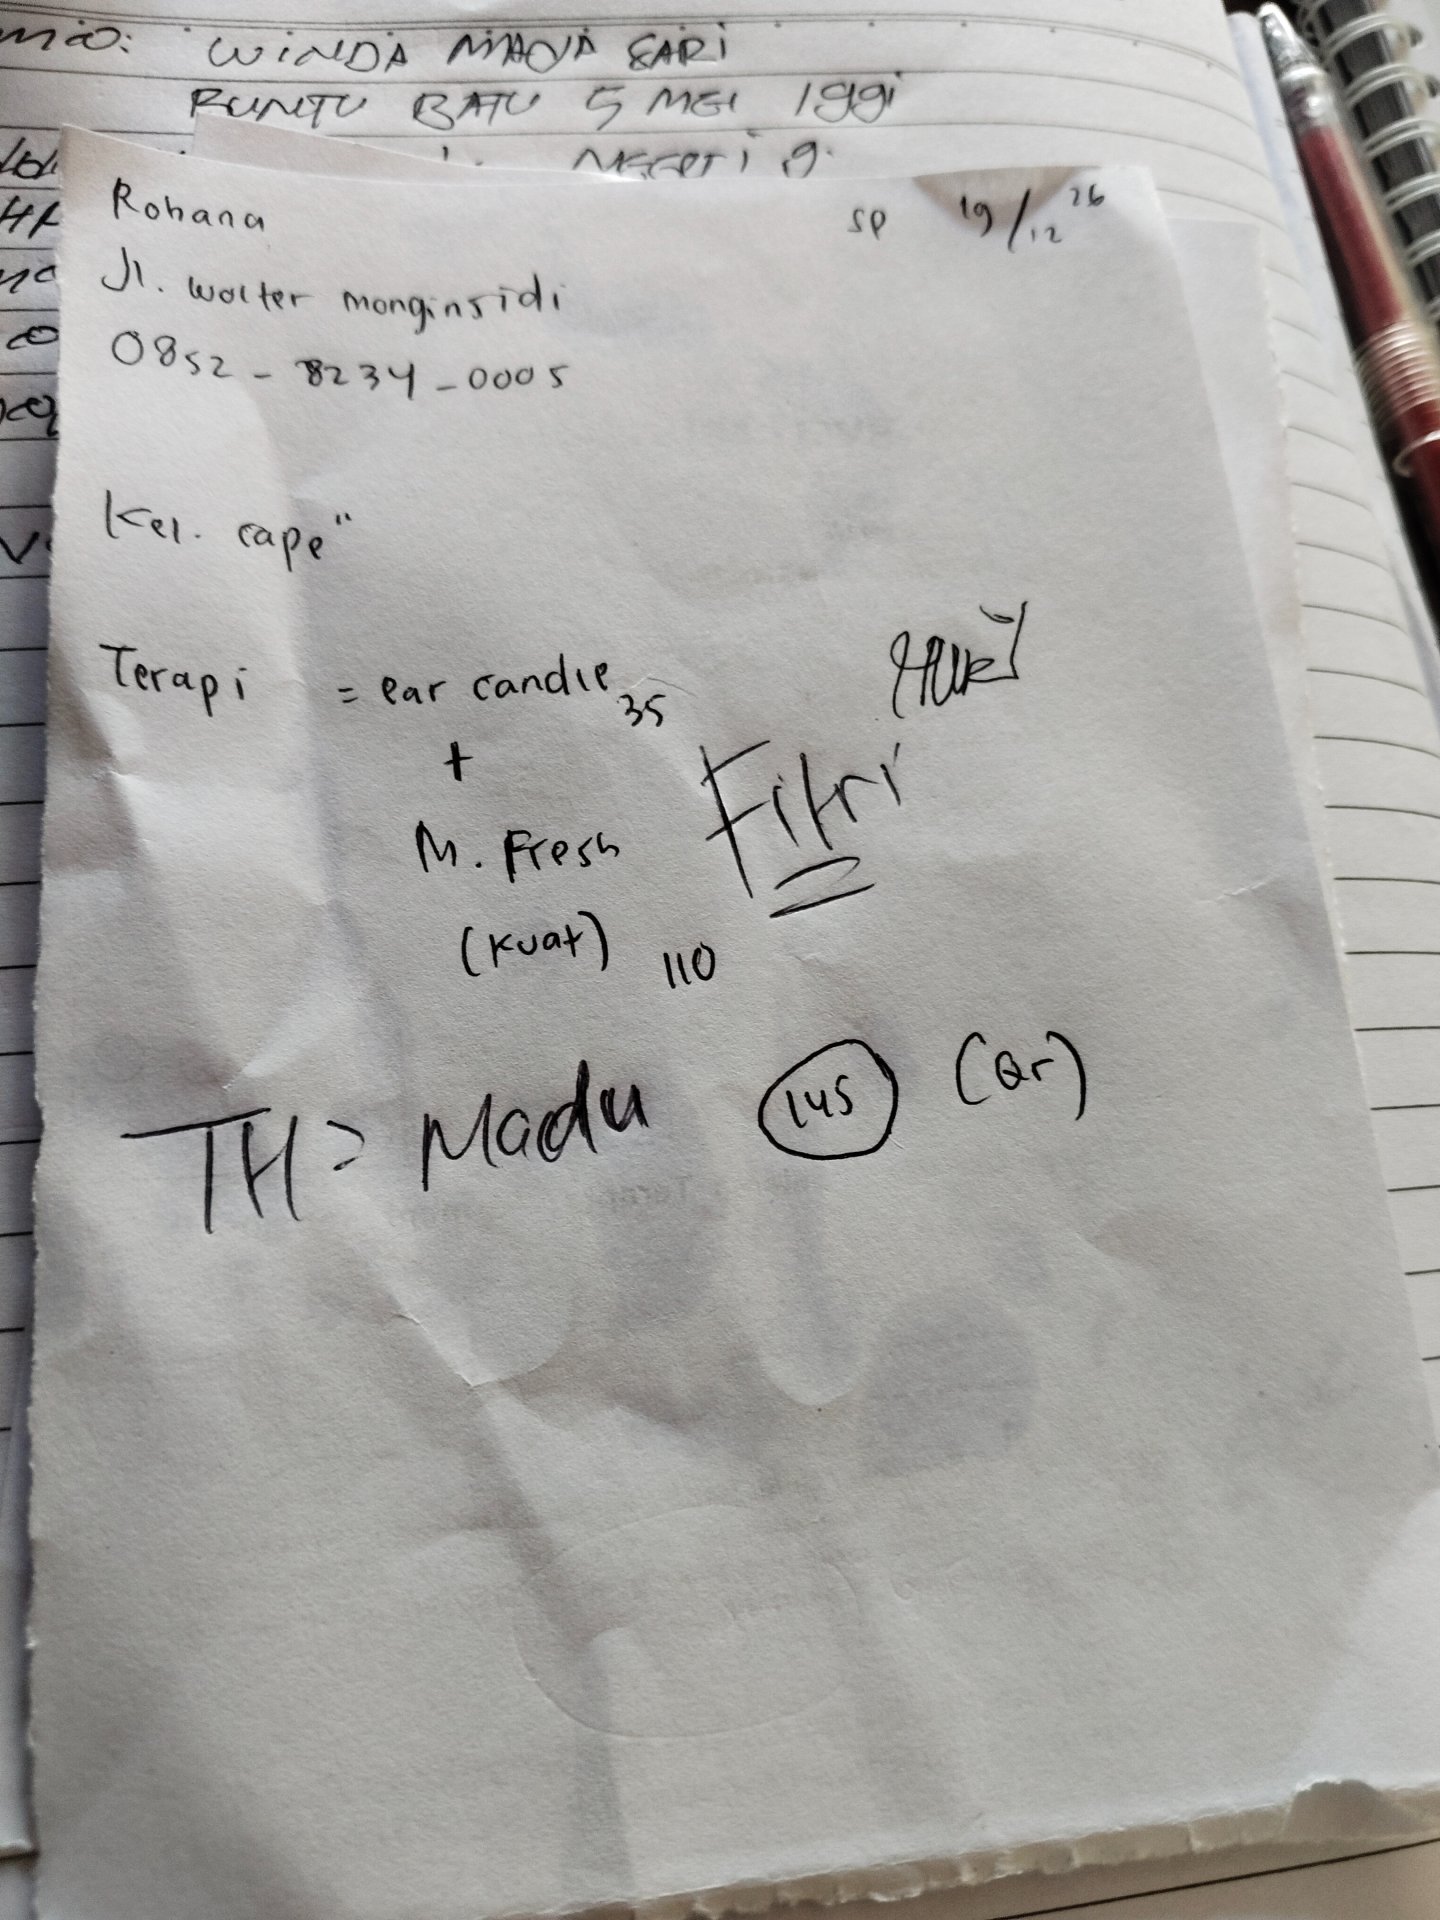 WINDA MAYA SARI
BUNTU BATU 5 MEI 1991
Rohana
SP 19/12 26
Jl. wolter monginsidi
0852 - 8234 - 0005
Kel. cape"
Terapi = ear candle 35
+
M. Fresh
Fitri
(Kuat) 110
TH = Madu 145 (Qr)